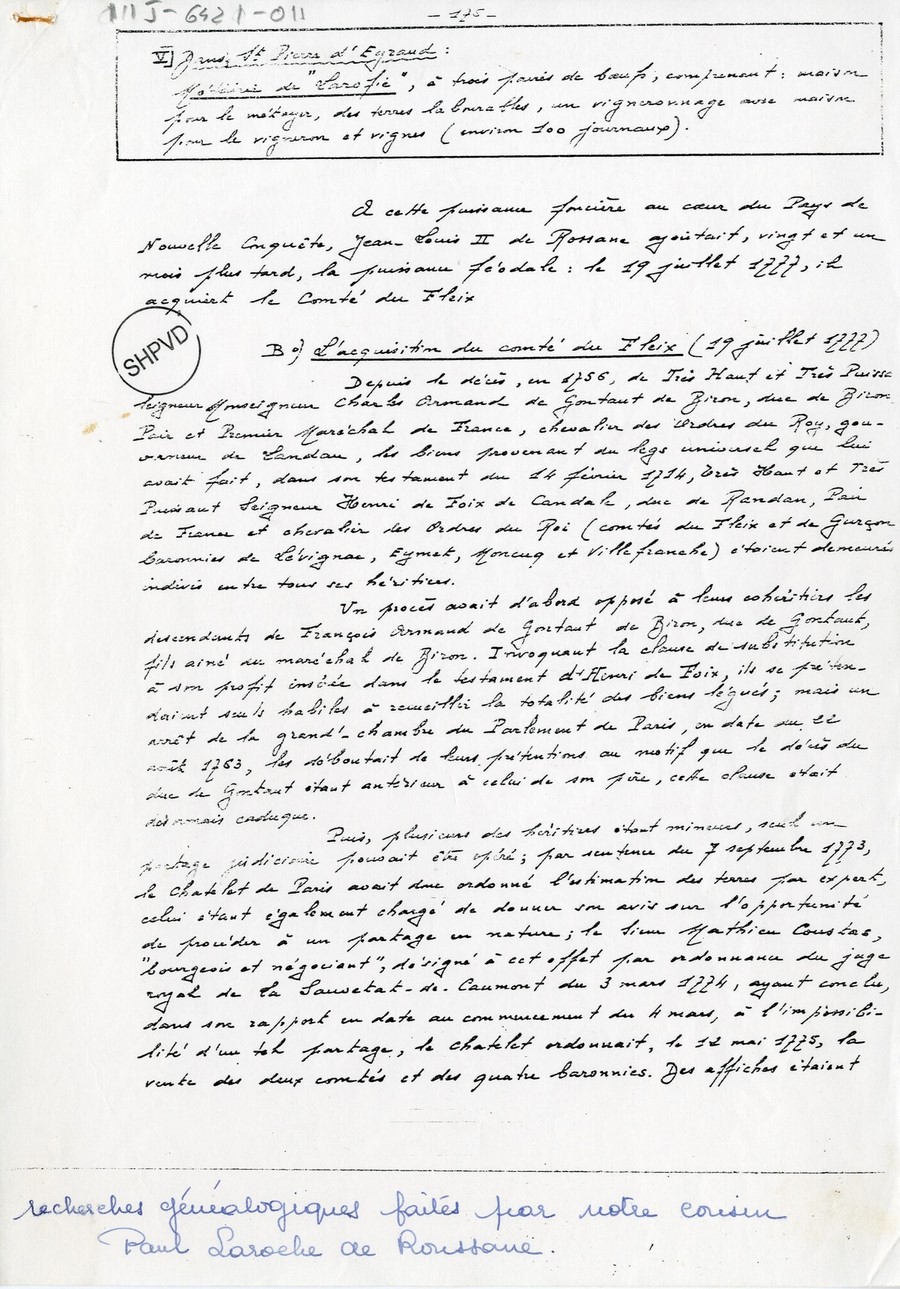 111 J-6421-011
- 175 -
V] Dans St Pierre d'Eyraud :
Métairie de "Larofie", à trois paires de bœufs, comprenant : maison
pour le métayer, des terres labourables, un vigneronnage avec maison
pour le vigneron et vignes (environ 100 journaux).
A cette puissance foncière au cœur du Pays de
Nouvelle Conquête, Jean-Louis II de Rossane ajoutait, vingt et un
mois plus tard, la puissance féodale : le 19 juillet 1777, il
acquiert le Comté du Fleix
SHPVD
B°) L'acquisition du comté du Fleix (19 juillet 1777)
Depuis le décès, en 1756, de Très Haut et Très Puissa
Seigneur Monseigneur Charles Armand de Gontaut de Biron, duc de Biron
Pair et Premier Maréchal de France, chevalier des Ordres du Roy, gou-
verneur de Landau, les biens provenant du legs universel que lui
avait fait, dans son testament du 14 février 1714, Très Haut et Très
Puissant Seigneur Henri de Foix de Candale, duc de Randan, Pair
de France et chevalier des Ordres du Roi (comtés du Fleix et de Gurçon
baronnies de Lévignac, Eymet, Moncuq et Villefranche) étaient demeurés
indivis entre tous ses héritiers.
Un procès avait d'abord opposé à leurs cohéritiers les
descendants de François Armand de Gontaut de Biron, duc de Gontaut,
fils ainé du maréchal de Biron. Invoquant la clause de substitution
à son profit insérée dans le testament d'Henri de Foix, ils se préten-
daient seuls habiles à recueillir la totalité des biens légués ; mais un
arrêt de la grand'-chambre du Parlement de Paris, en date du 22
août 1763, les déboutait de leurs prétentions au motif que le décès du
duc de Gontaut étant antérieur à celui de son père, cette clause était
désormais caduque.
Puis, plusieurs des héritiers étant mineurs, seul un
partage judiciaire pouvait être opéré ; par sentence du 7 septembre 1773,
le Chatelet de Paris avait donc ordonné l'estimation des terres par expert,
celui étant également chargé de donner son avis sur l'opportunité
de procéder à un partage en nature ; le sieur Mathieu Coustas,
"bourgeois et négociant", désigné à cet effet par ordonnance du juge
royal de La Sauvetat-de-Caumont du 3 mars 1774, ayant conclu,
dans son rapport en date au commencement du 4 mars, à l'impossibi-
lité d'un tel partage, le Chatelet ordonnait, le 12 mai 1775, la
vente des deux comtés et des quatre baronnies. Des affiches étaient
recherches généalogiques faites par notre cousin
Paul Laroche de Roussane.